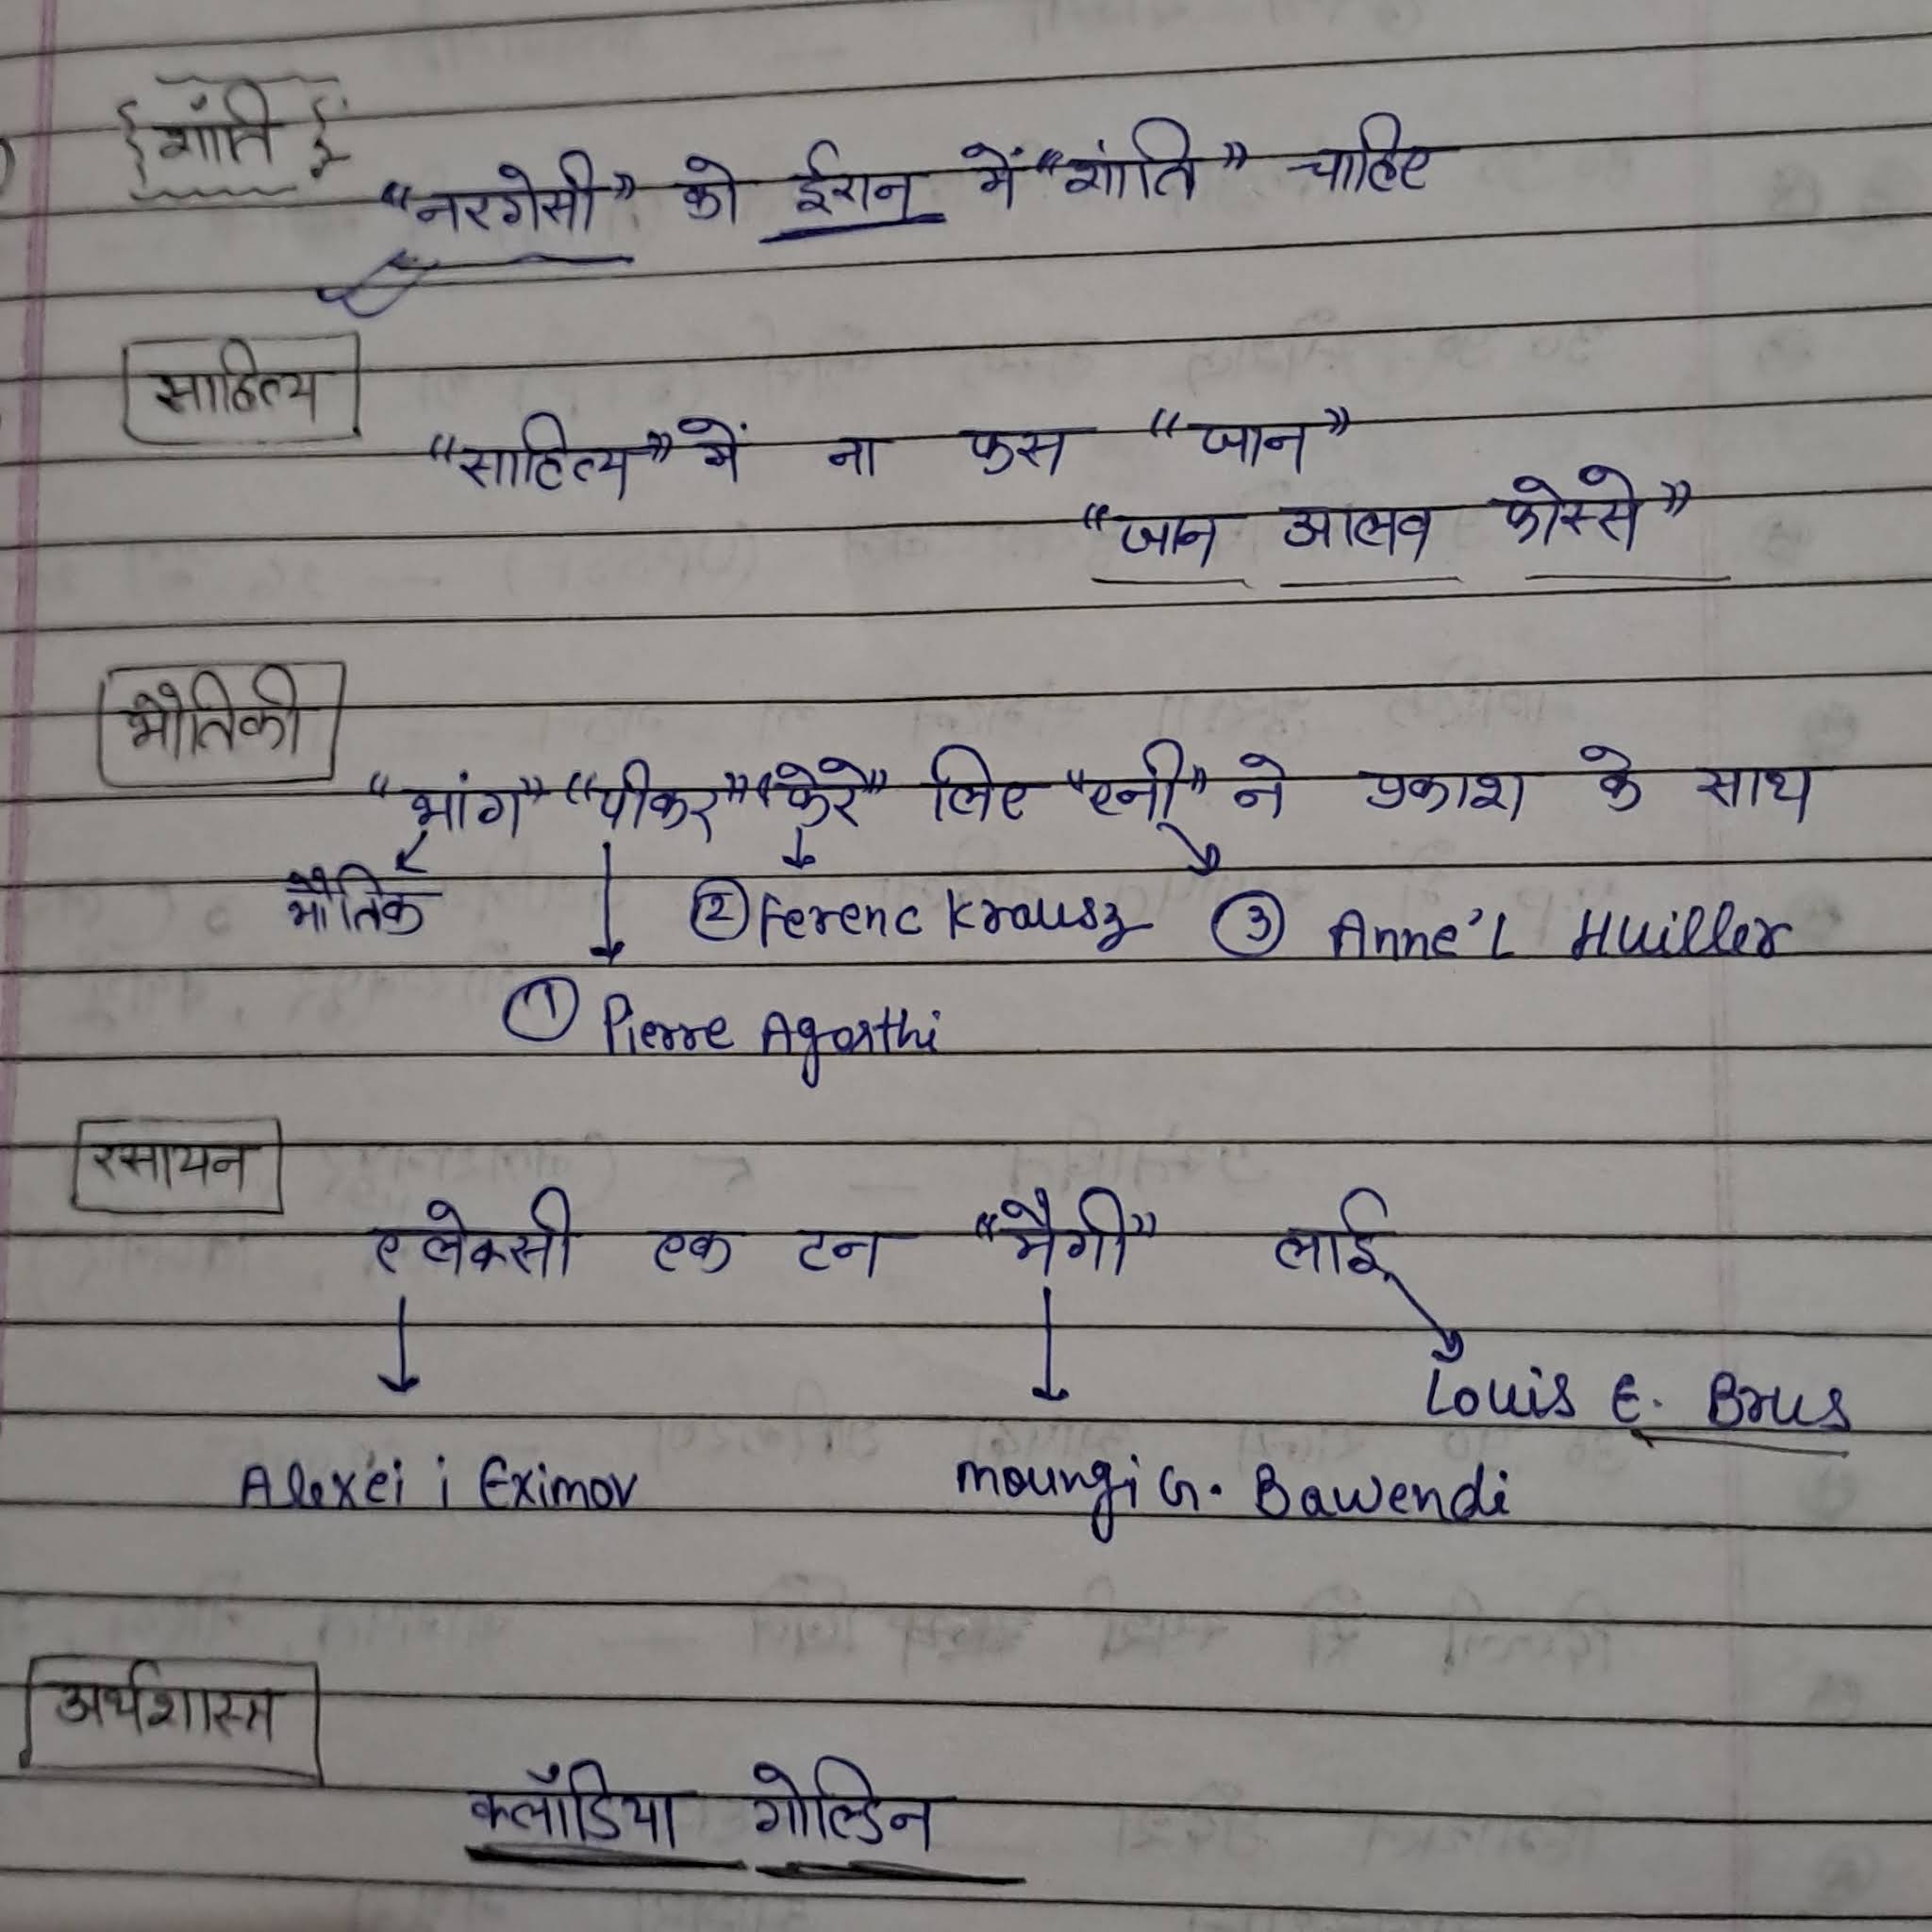 शांति
"नरगेसी" को ईरान में "शांति" चाहिए
साहित्य
"साहित्य" में ना फस "जान"
"जान आलव फोस्से"
भौतिकी
"भांग" "पीकर" "फेरे" लिए "एनी" ने प्रकाश के साथ
भौतिक
② Ferenc Krausz ③ Anne'L Huiller
① Pierre Agosthi
रसायन
एलेक्सी एक टन "मैगी" लाई
Louis E. Brus
Alexei i Eximov moungi G. Bawendi
अर्थशास्त्र
क्लॉडिया गोल्डिन